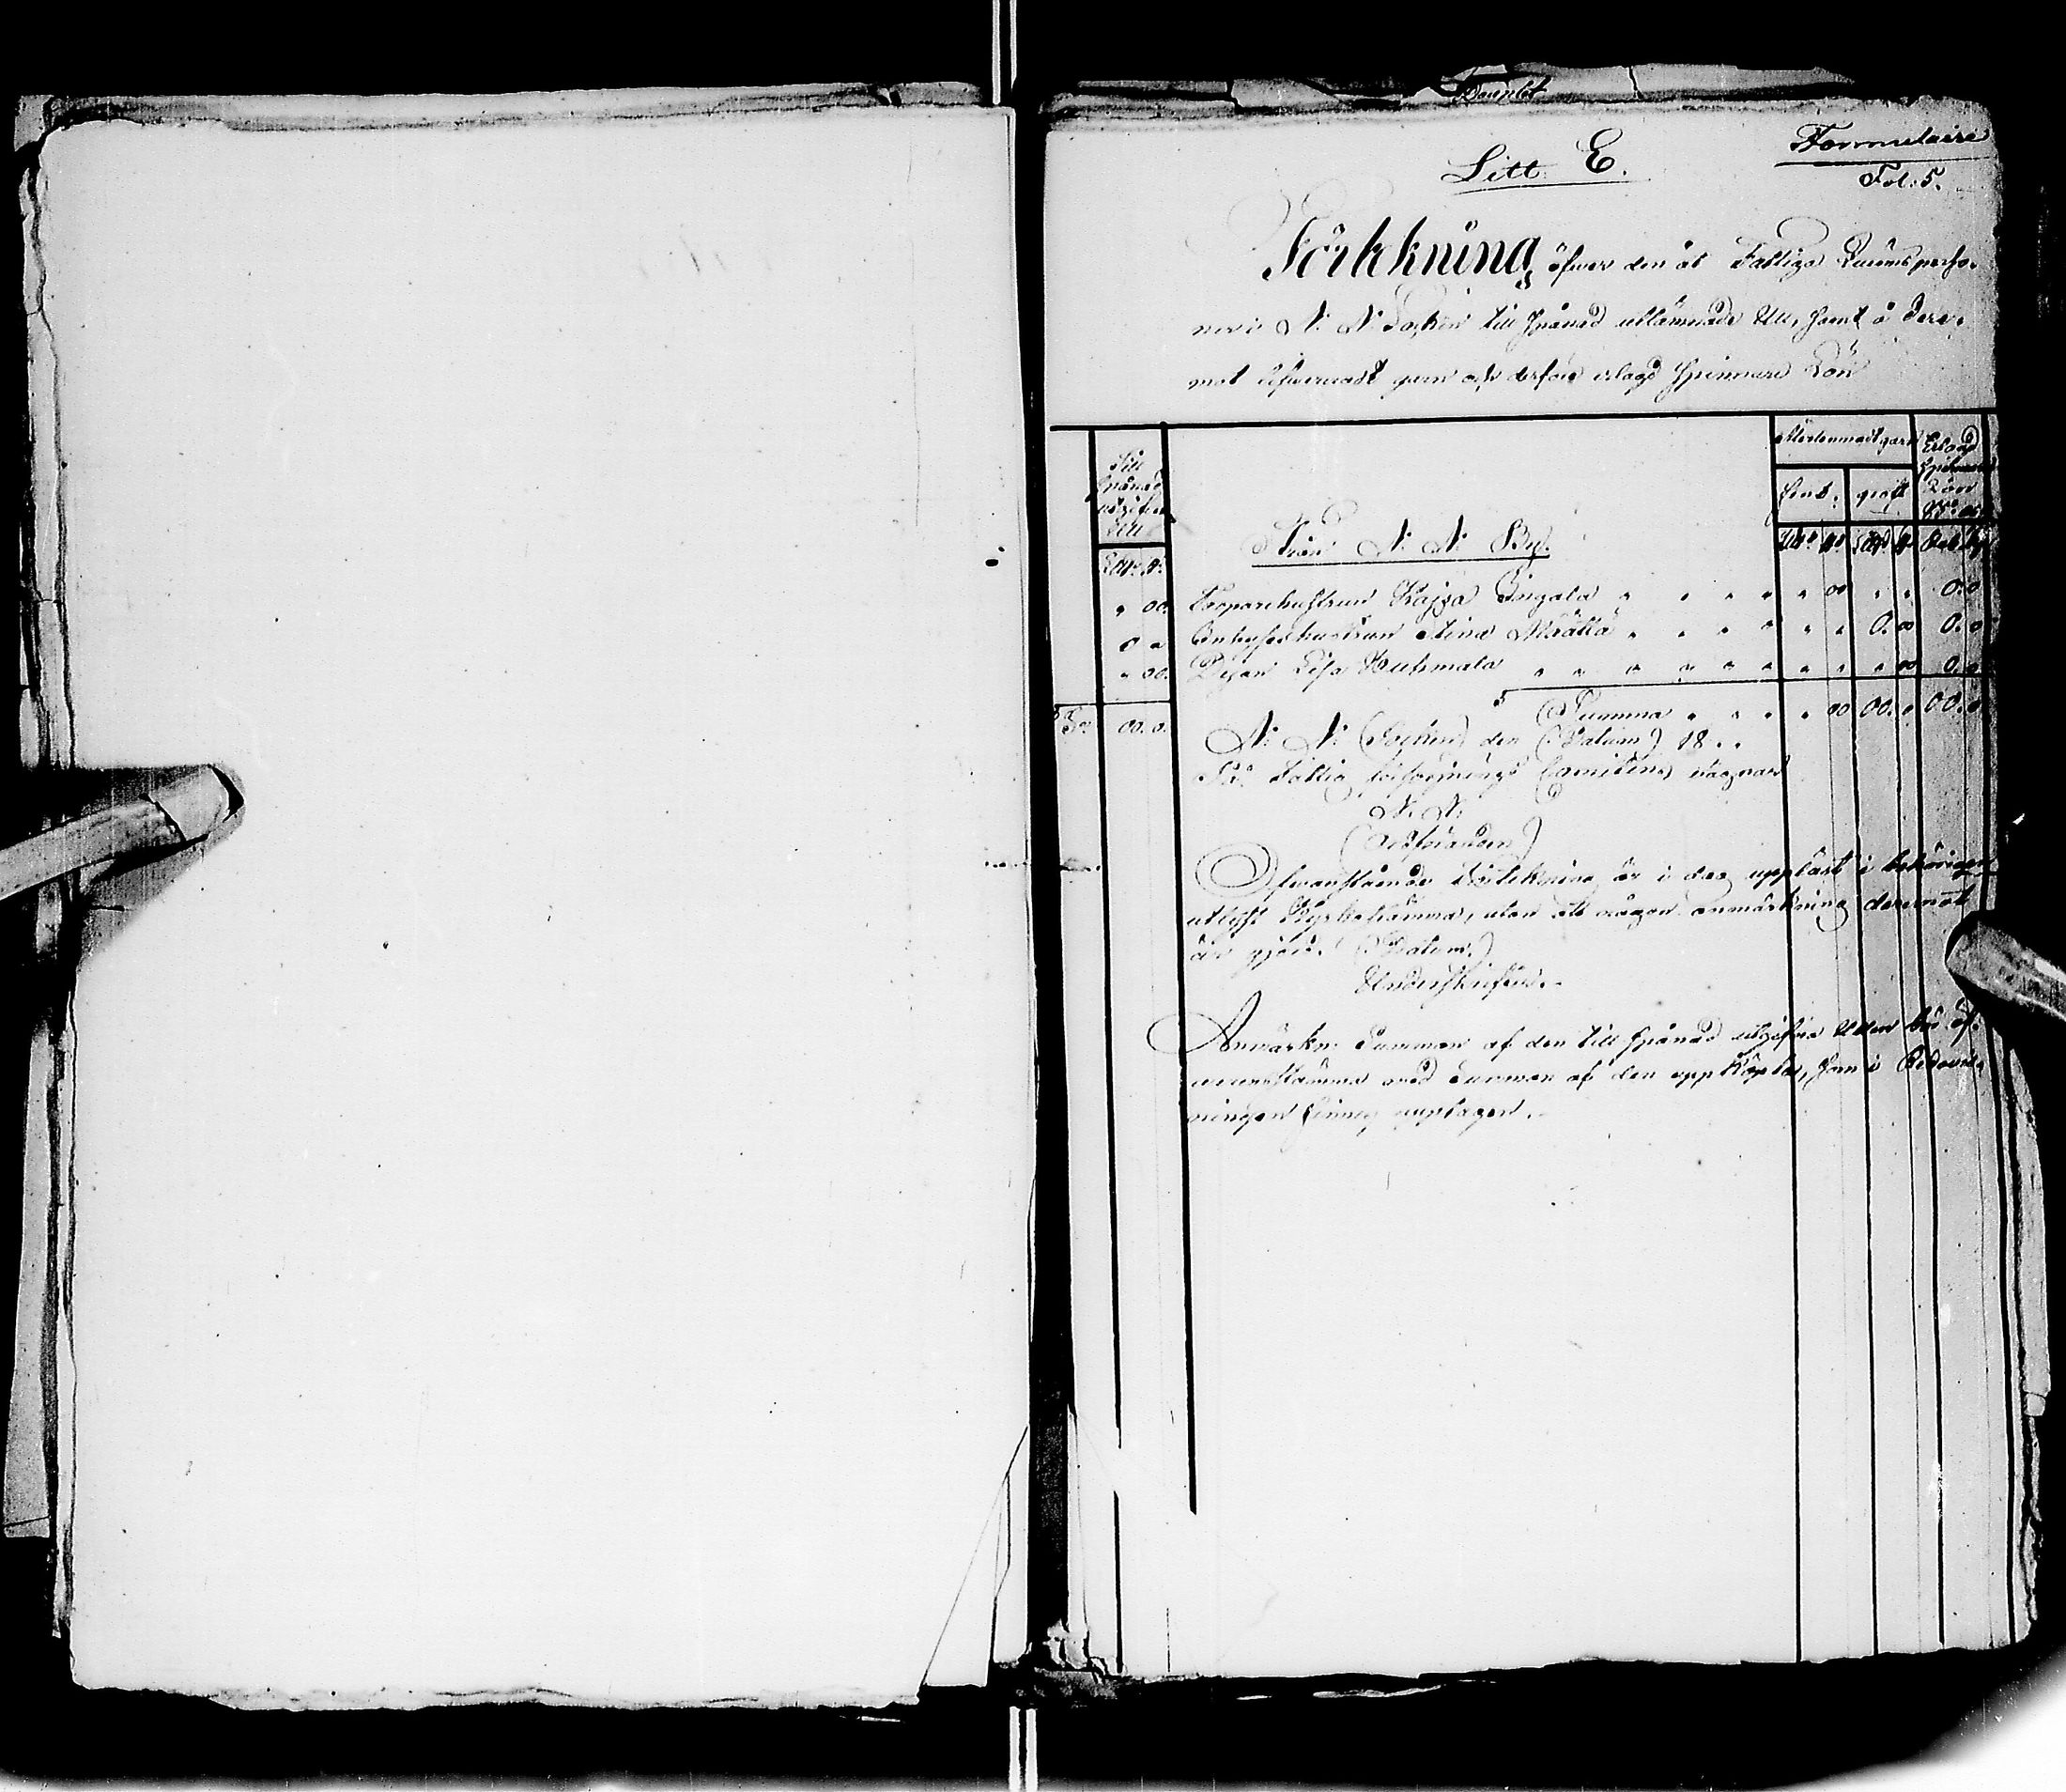 Litt E.
Formulaire
Fol: 5.
Förtekning öfwer den åt Fattiga Qvinnsperso-
ner i N. N. Socken till spånad utlämnade Ull, samt å dere-
mot lefvereradt garn och derföre erlagd spinnare Lön
Till
spånad
utgifven
Ull
garn
Erlagd
Spinnare
Lön
fint.
groft
Från N. N. By.
00. Torparehustrun Kajsa Pingala 00 0. 0
0 Inhyseshustrun Stina Määttä 0. 00 0. 0
00. Pigan Lisa Huhmala 00 0. 0
Sa 00. 0. Summa 00 00. 00. 0
N. N. (Socken) den (Datum) 18..
På Fattig försörjnings Comiténs vägnar
N. N.
(Ordföranden)
Ofwanstående Förtekning är i dag uppläst i behörigen
utlyst Kyrkostämma, utan att någon anmärkning deremot
är gjord. (Datum.)
Underskrifter.
Anmärkn: Summan af den till spånad utgifna Ullen bör öf-
verensstämma med Summan af den uppköpta, som i Redovis-
ningen finnes upptagen.